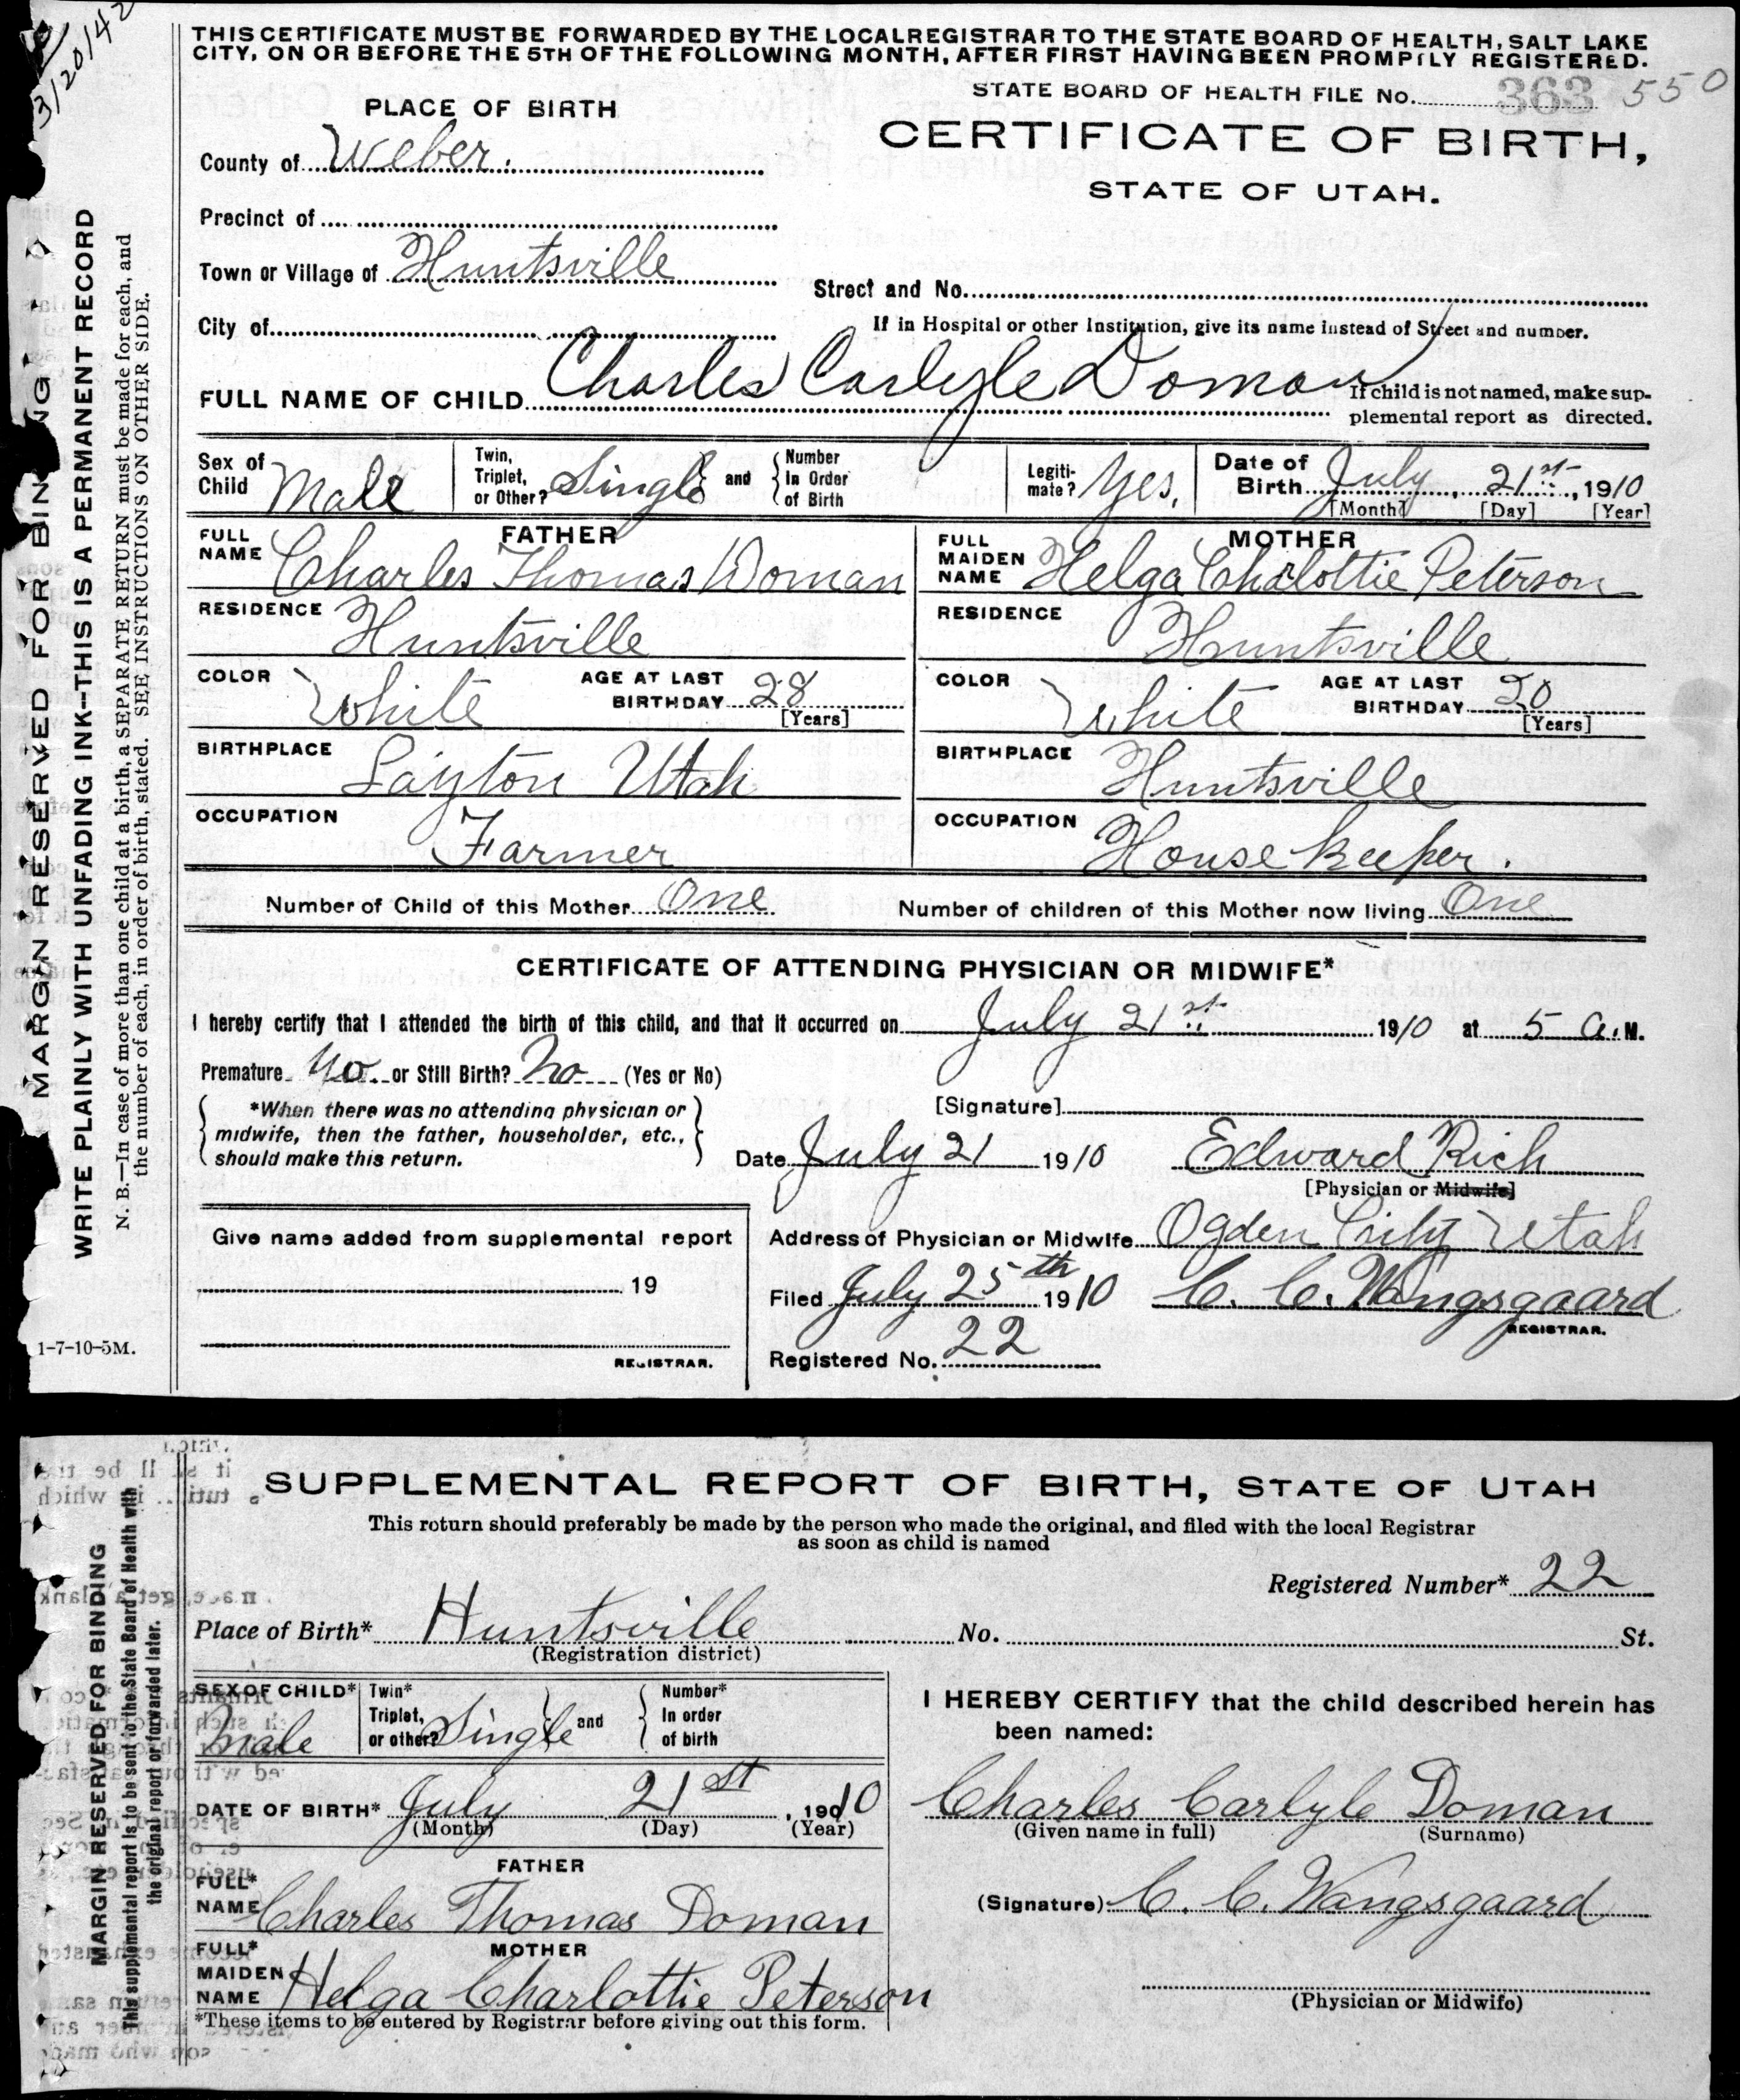 3/20/42
THIS CERTIFICATE MUST BE FORWARDED BY THE LOCAL REGISTRAR TO THE STATE BOARD OF HEALTH, SALT LAKE
CITY, ON OR BEFORE THE 5TH OF THE FOLLOWING MONTH, AFTER FIRST HAVING BEEN PROMPTLY REGISTERED.
STATE BOARD OF HEALTH FILE No. 363 550
PLACE OF BIRTH
CERTIFICATE OF BIRTH,
STATE OF UTAH.
County of Weber.
Precinct of
Town or Village of Huntsville
Street and No.
City of
If in Hospital or other Institution, give its name instead of Street and number.
FULL NAME OF CHILD Charles Carlyle Doman
If child is not named, make sup-
plemental report as directed.
Sex of Child Male
Twin, Triplet, or Other? Single and Number In Order of Birth
Legiti-mate? Yes.
Date of Birth July 21st, 1910
[Month] [Day] [Year]
FATHER
FULL NAME Charles Thomas Doman
RESIDENCE Huntsville
COLOR White AGE AT LAST BIRTHDAY 28 [Years]
BIRTHPLACE Layton Utah
OCCUPATION Farmer
MOTHER
FULL MAIDEN NAME Helga Charlottie Peterson
RESIDENCE Huntsville
COLOR White AGE AT LAST BIRTHDAY 20 [Years]
BIRTHPLACE Huntsville
OCCUPATION House Keeper.
Number of Child of this Mother One Number of children of this Mother now living One
CERTIFICATE OF ATTENDING PHYSICIAN OR MIDWIFE*
I hereby certify that I attended the birth of this child, and that it occurred on July 21st 1910 at 5 A.M.
Premature No. or Still Birth? No (Yes or No)
*When there was no attending physician or
midwife, then the father, householder, etc.,
should make this return.
[Signature]
Date July 21 1910 Edward Rich
[Physician or Midwife]
Address of Physician or Midwife Ogden City Utah
Filed July 25th 1910 C. C. Wangsgaard
REGISTRAR.
Registered No. 22
Give name added from supplemental report
19
REGISTRAR.
MARGIN RESERVED FOR BINDING
WRITE PLAINLY WITH UNFADING INK--THIS IS A PERMANENT RECORD
N. B.—In case of more than one child at a birth, a SEPARATE RETURN must be made for each, and
the number of each, in order of birth, stated. SEE INSTRUCTIONS ON OTHER SIDE.
1-7-10-5M.
SUPPLEMENTAL REPORT OF BIRTH, STATE OF UTAH
This return should preferably be made by the person who made the original, and filed with the local Registrar
as soon as child is named
Registered Number* 22
Place of Birth* Huntsville No. St.
(Registration district)
SEX OF CHILD* Male
Twin* Triplet, or other? Single and Number* In order of birth
DATE OF BIRTH* July 21st, 1910
(Month) (Day) (Year)
FATHER
FULL* NAME Charles Thomas Doman
MOTHER
FULL* MAIDEN NAME Helga Charlottie Peterson
*These items to be entered by Registrar before giving out this form.
I HEREBY CERTIFY that the child described herein has
been named:
Charles Carlyle Doman
(Given name in full) (Surname)
(Signature) C. C. Wangsgaard
(Physician or Midwife)
MARGIN RESERVED FOR BINDING
This supplemental report is to be sent to the State Board of Health with
the original report or forwarded later.